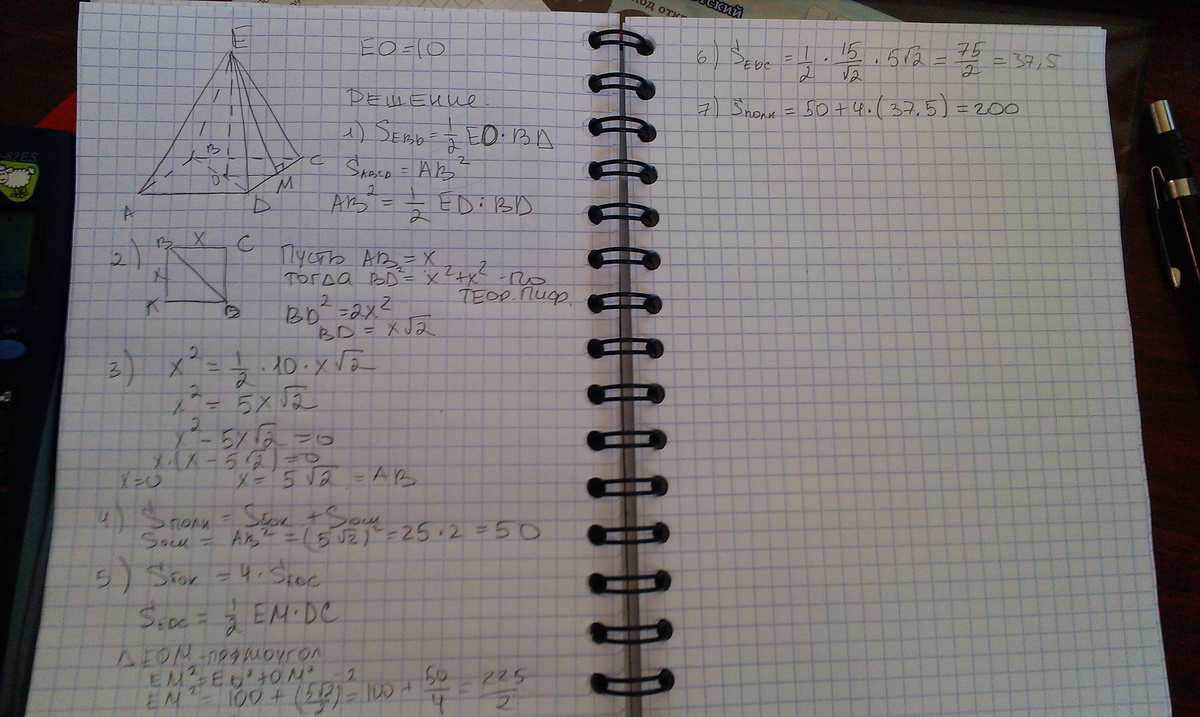 E
EO=10
РЕШЕНИЕ.
1) S_EBD = 1/2 EO·BD
S_ABCD = AB²
AB² = 1/2 ED·BD
B
C
O
M
A
D
2)
B x C
x
K
B
Пусть AB = x
тогда BD² = x²+x² - по
ТЕОР. Пиф.
BD² = 2x²
BD = x√2
3) x² = 1/2 · 10 · x√2
x² = 5x√2
x² - 5x√2 = 0
x·(x - 5√2) = 0
x=0 x = 5√2 = AB
4) S полн = S бок + S осн
S осн = AB² = (5√2)² = 25·2 = 50
5) S бок = 4·S EDC
S EDC = 1/2 EM·DC
△EOM-прямоугол
EM² = EO²+OM²
EM² = 100 + (5√2/2)² = 100 + 50/4 = 225/2
6) S EDC = 1/2 · 15/√2 · 5√2 = 75/2 = 37,5
7) S полн = 50+4·(37.5) = 200
ский